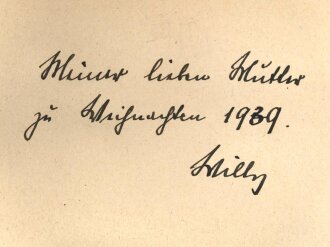 Meiner lieben Mutter
zu Weihnachten 1939.
Willy